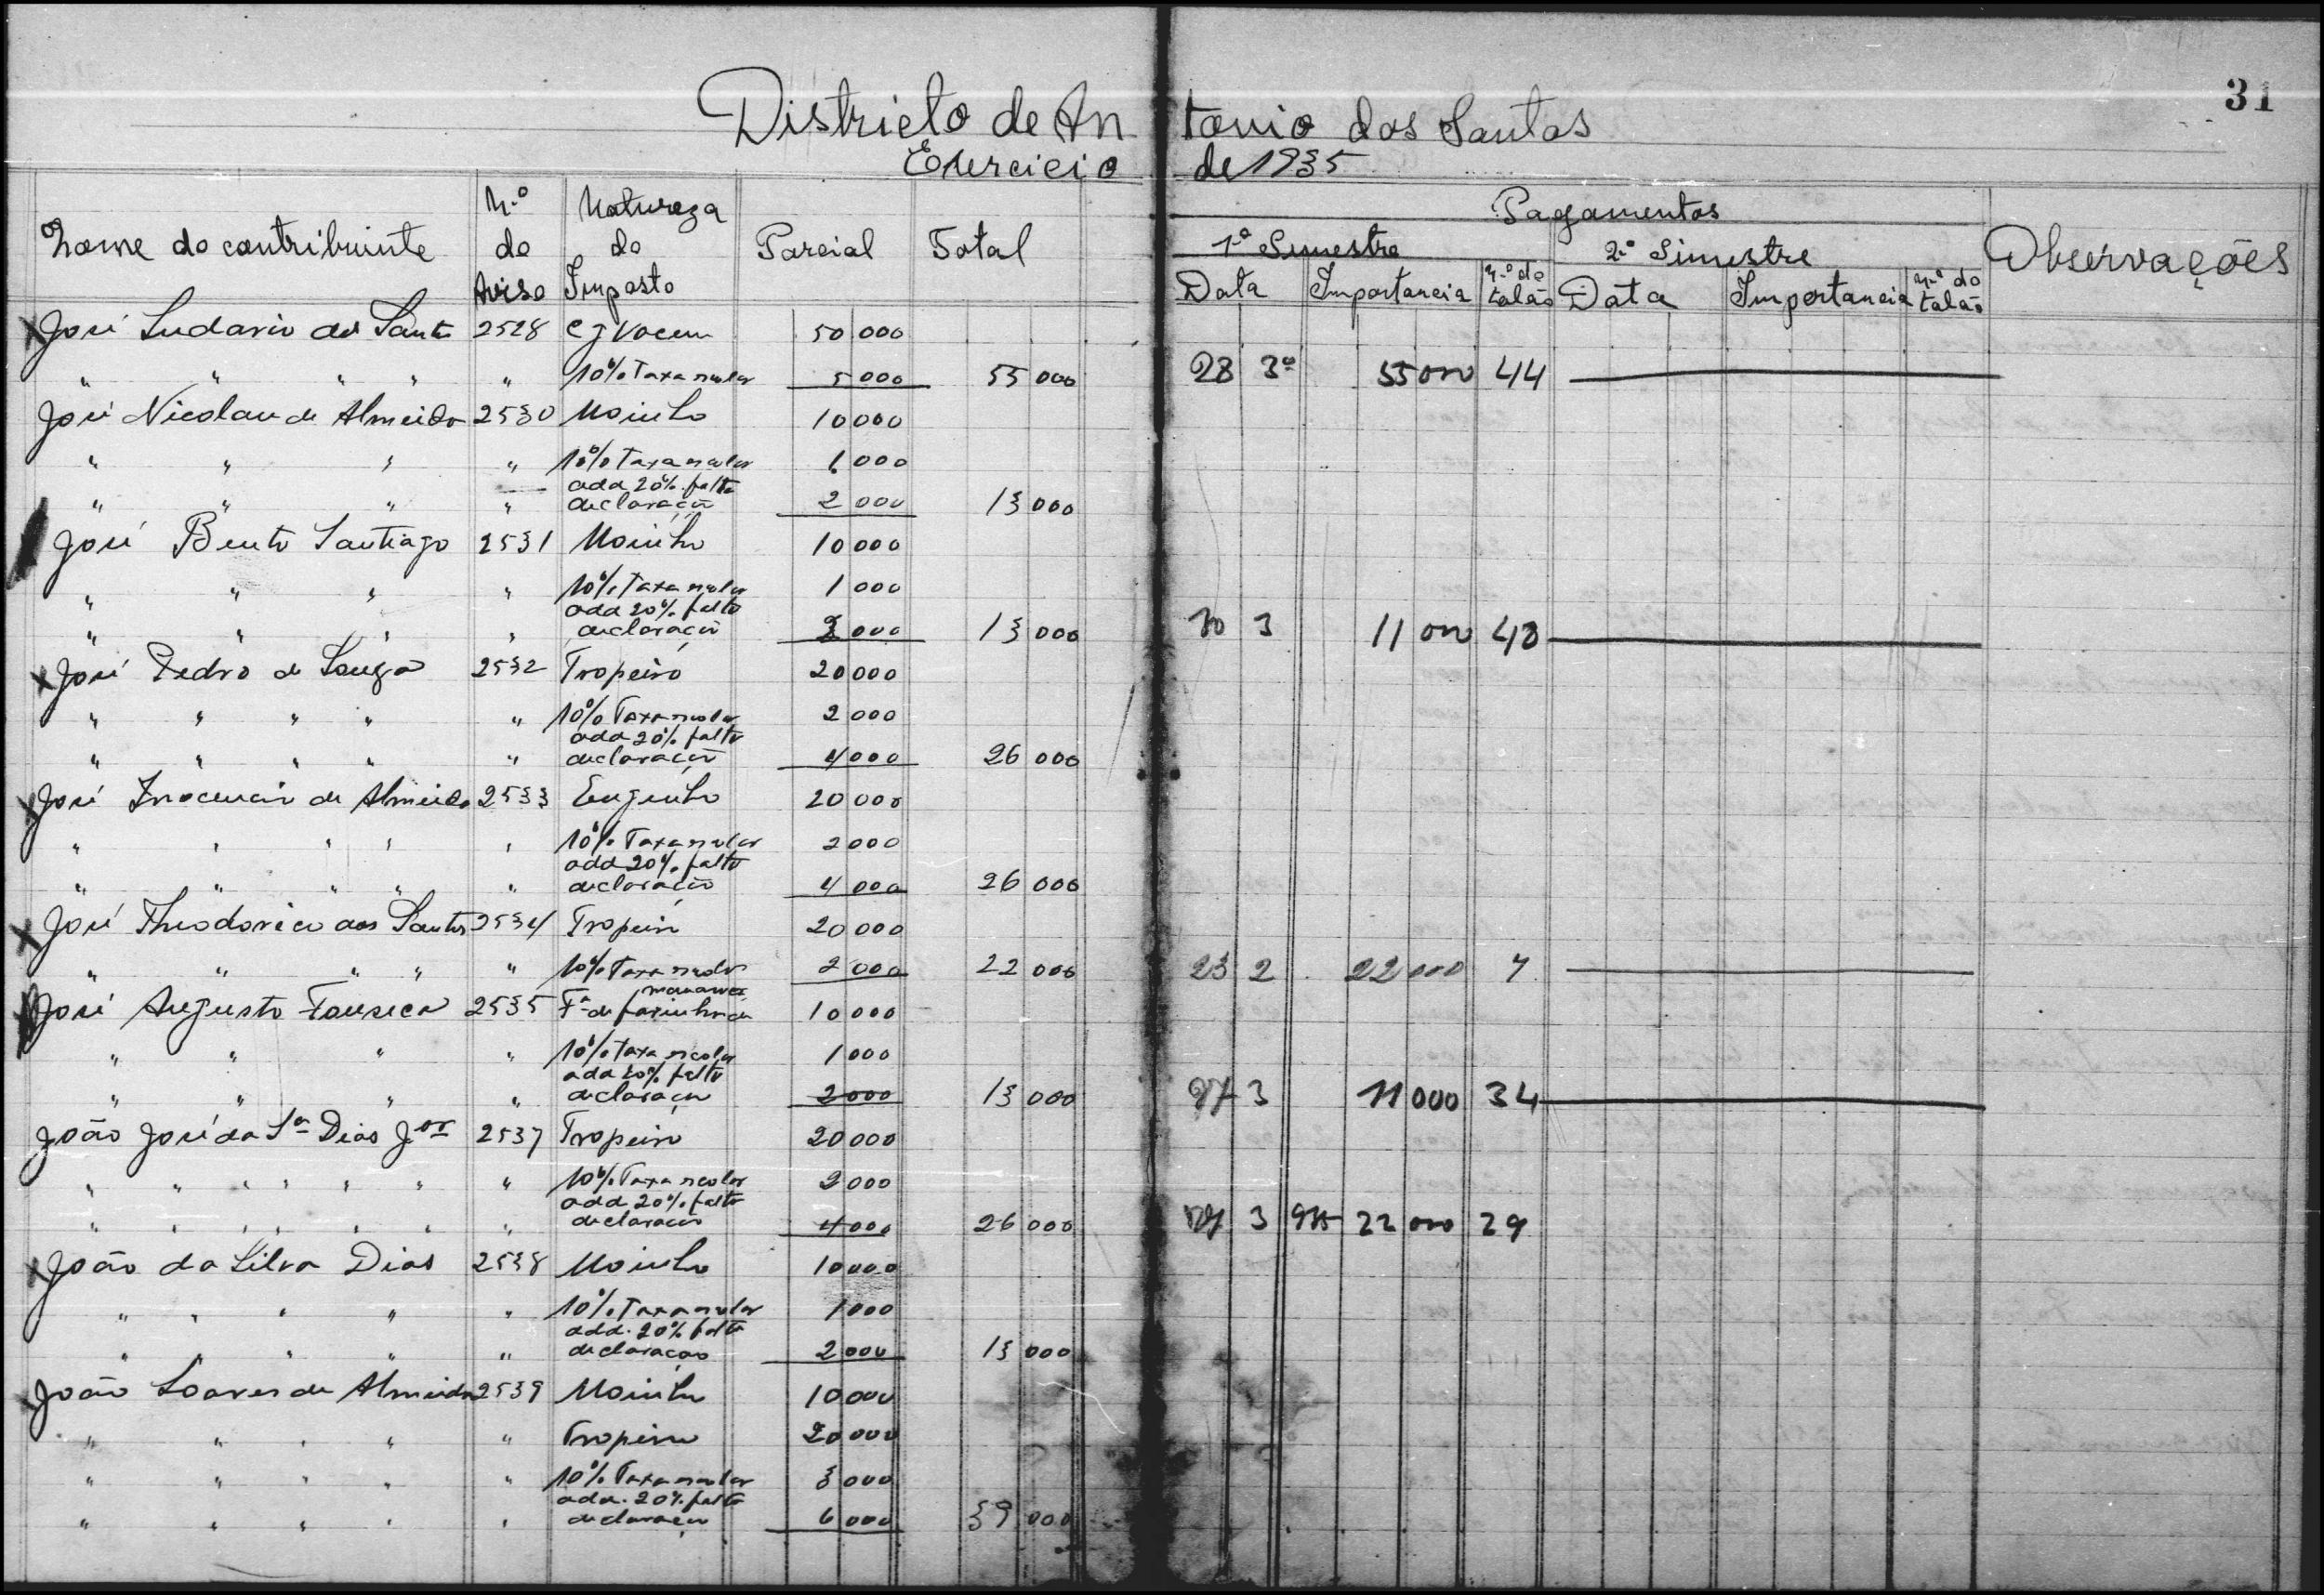 31
Districto de Antonio dos Santos
Exercicio de 1935
Nome do contribuinte N.º do Aviso Natureza do Imposto Parcial Total Pagamentos Observações
1º Semestre 2º Simestre
Data Importancia n.º do talão Data Importancia n.º do talão
José Sudario dos Santos 2528 50 000
" " " " " 10% Taxa escolar 5 000 55 000 28 3º 55 000 44
José Nicolau de Almeida 2530 Moinho 10 000
" " " " 10% Taxa escolar 1 000
" " " " add 20% falta declaração 2 000 13 000
José Bento Santiago 2531 Moinho 10 000
" " " " 10% Taxa escolar 1 000
" " " " add 20% falta declaração 2 000 13 000 30 3 11 000 48
José Pedro de Souza 2532 Tropeiro 20 000
" " " " " 10% Taxa escolar 2 000
" " " " " add 20% falta declaração 4 000 26 000
José Inocencio de Almeida 2533 Engenho 20 000
" " " " " 10% Taxa escolar 2 000
" " " " " add 20% falta declaração 4 000 26 000
José Theodorico dos Santos 2534 Tropeiro 20 000
" " " " " 10% Taxa escolar 2 000 22 000 23 2 22 000 7
José Augusto Fonseca 2535 Fª de farinha de 10 000
" " " " 10% Taxa escolar 1 000
" " " " add 20% falta declaração 2 000 13 000 27 3 11 000 34
João José da Sª Dias Jor 2537 Tropeiro 20 000
" " " " " " " 10% Taxa escolar 2 000
" " " " " " " add 20% falta declaração 4 000 26 000 27 3 935 22 000 29
João da Silva Dias 2538 Moinho 10 000
" " " " " 10% Taxa escolar 1 000
" " " " " add. 20% falta declaração 2 000 13 000
João Soares de Almeida 2539 Moinho 10 000
" " " " " Tropeiro 20 000
" " " " " 10% Taxa escolar 3 000
" " " " " add. 20% falta declaração 6 000 39 000